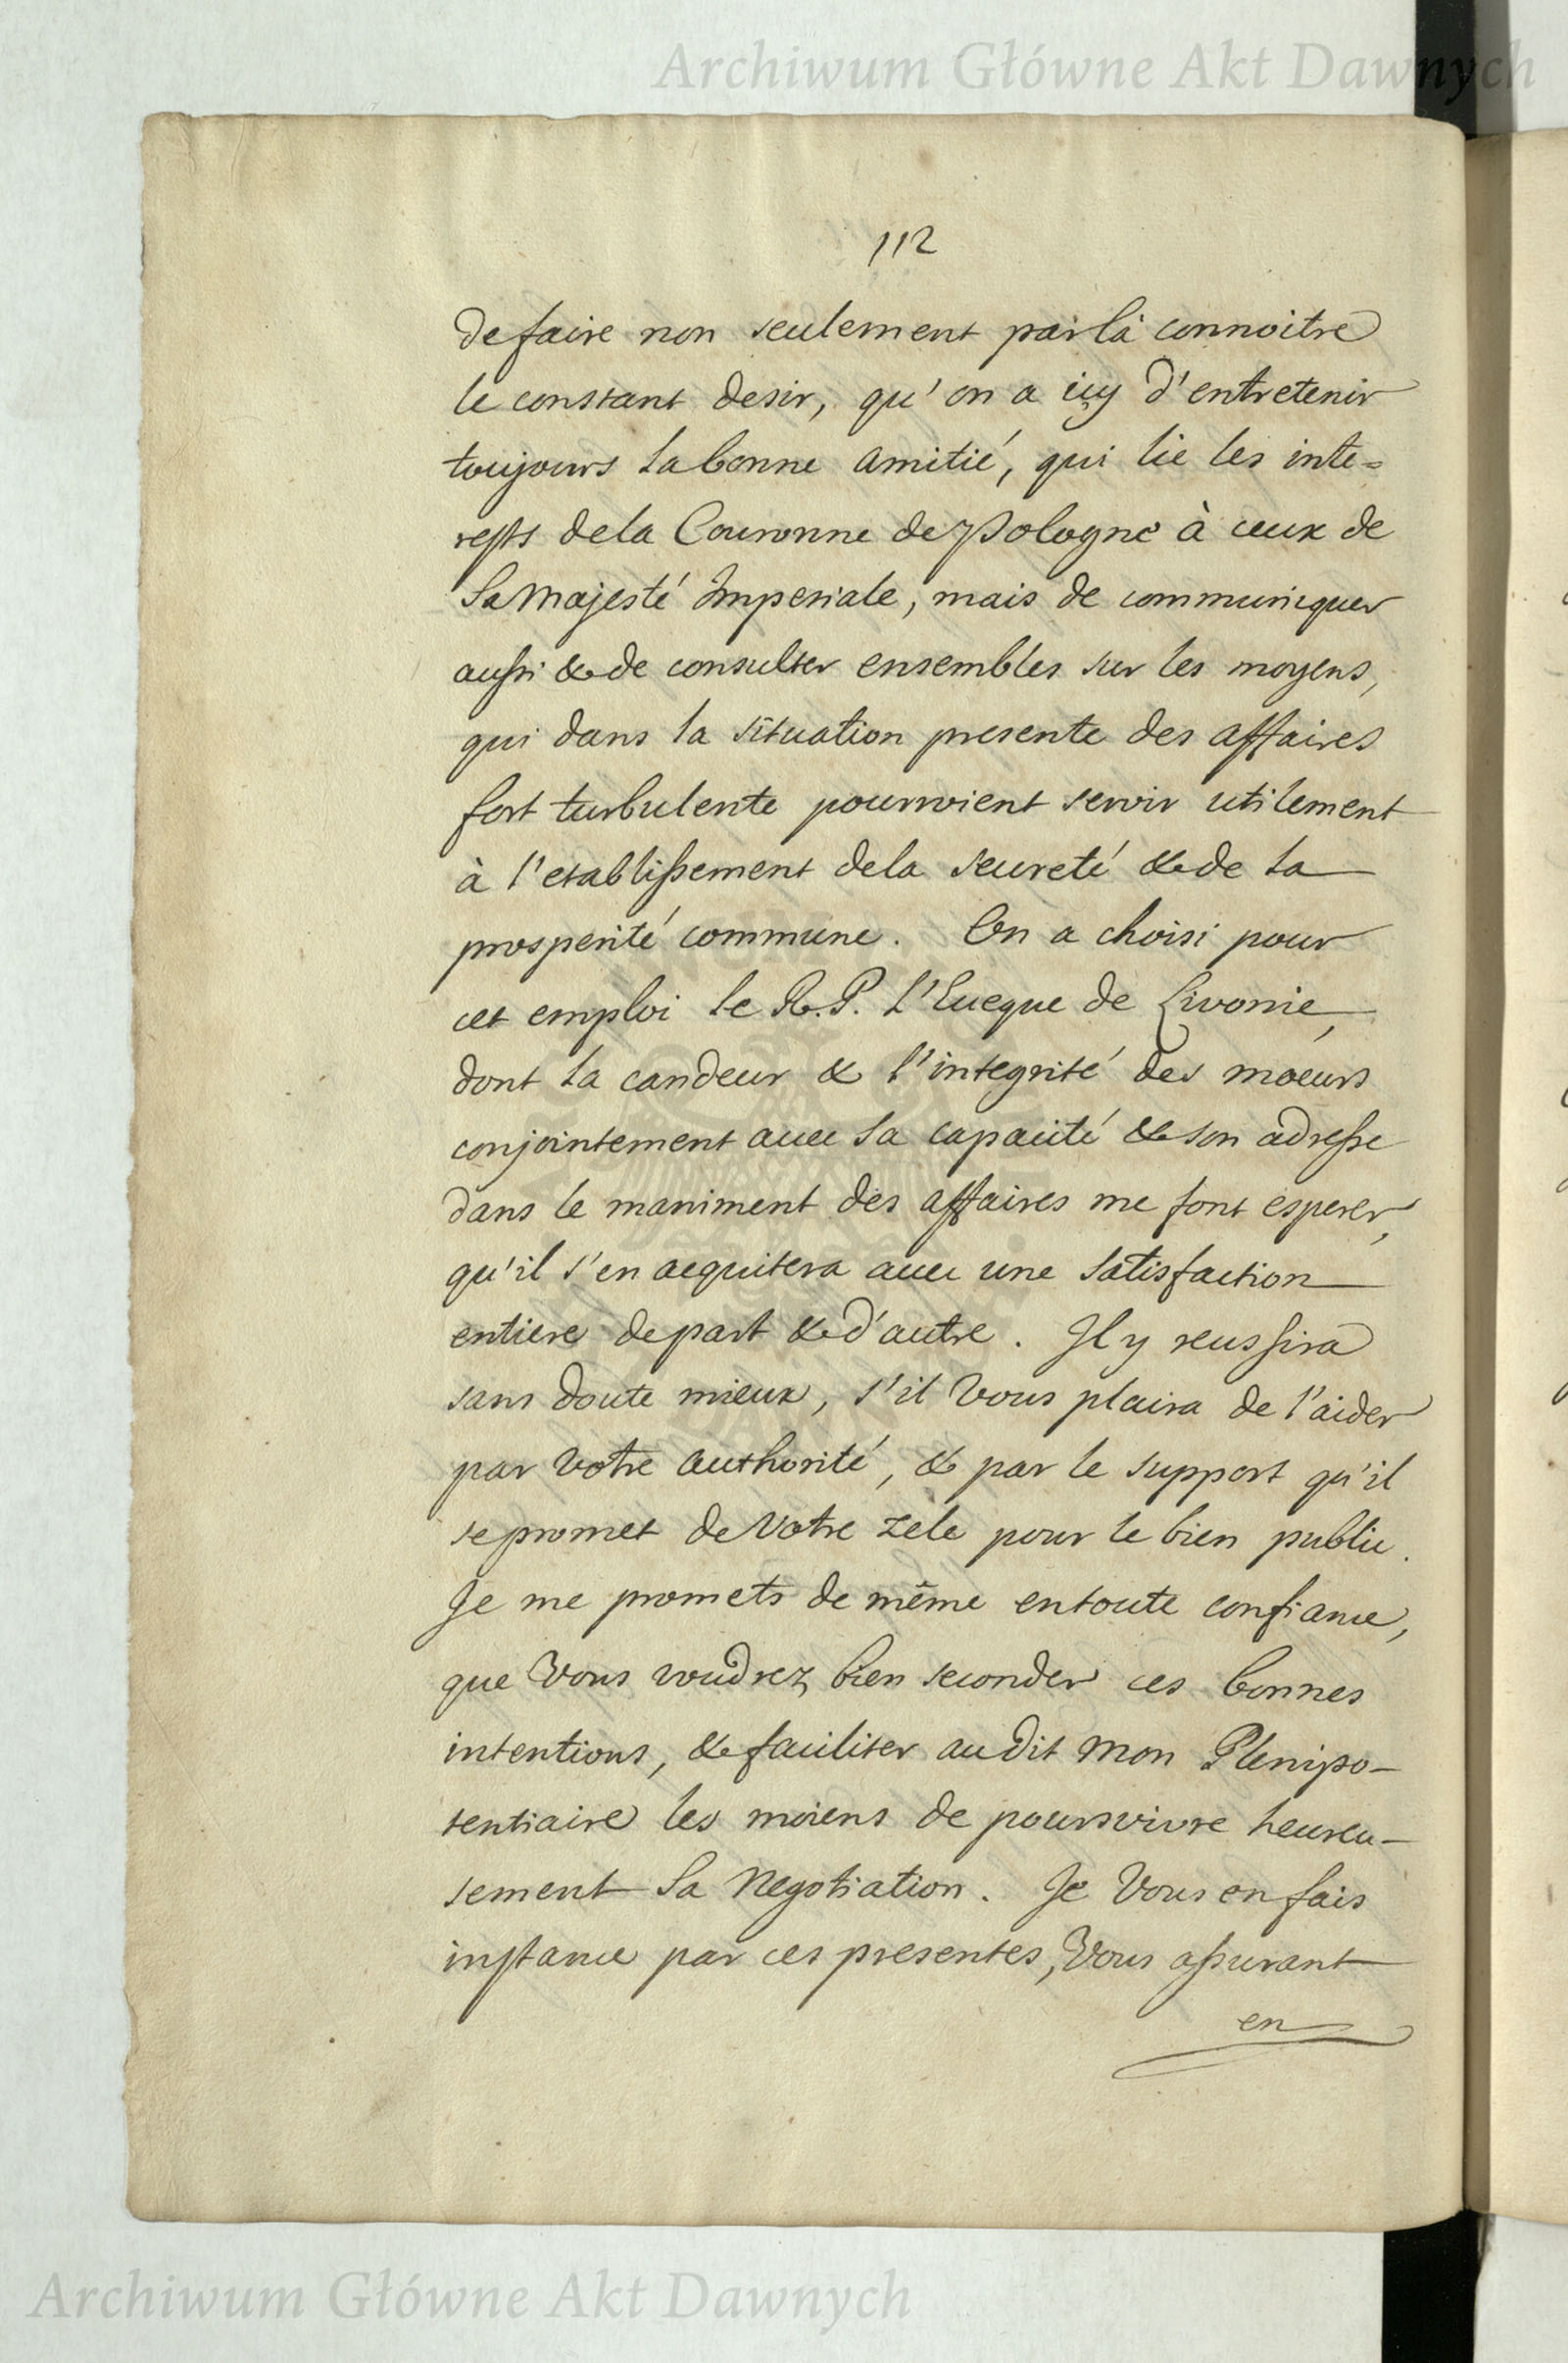 Archiwum Główne Akt Dawnych
112
de faire non seulement par là connoitre
le constant desir, qu'on a icy d'entretenir
toujours la bonne amitié, qui lie les inte=
rests de la Couronne de Pologne à ceux de
Sa Majesté Imperiale, mais de communiquer
aussi & de consulter ensembles sur les moyens,
qui dans la situation presente des affaires
fort turbulente pourroient servir utilement
à l'etablissement de la seureté & de la
prosperité commune. On a choisi pour
cet emploi le R. P. L'Eveque de Livonie,
dont la candeur & l'integrité des moeurs
conjointement avec sa capacité & son adresse
dans le maniment des affaires me font esperer,
qu'il s'en acquitera avec une satisfaction
entiere de part & d'autre. Il y reussira
sans doute mieux, s'il Vous plaira de l'aider
par votre authorité, & par le support qu'il
se promet de Votre zele pour le bien public.
Je me promets de même en toute confiance,
que Vous voudrez bien seconder ces bonnes
intentions, & faciliter au dit mon Plenipo-
tentiaire les moiens de poursvivre heureu-
sement sa Negotiation. Je Vous en fais
instance par ces presentes, Vous assurant
en
Archiwum Główne Akt Dawnych